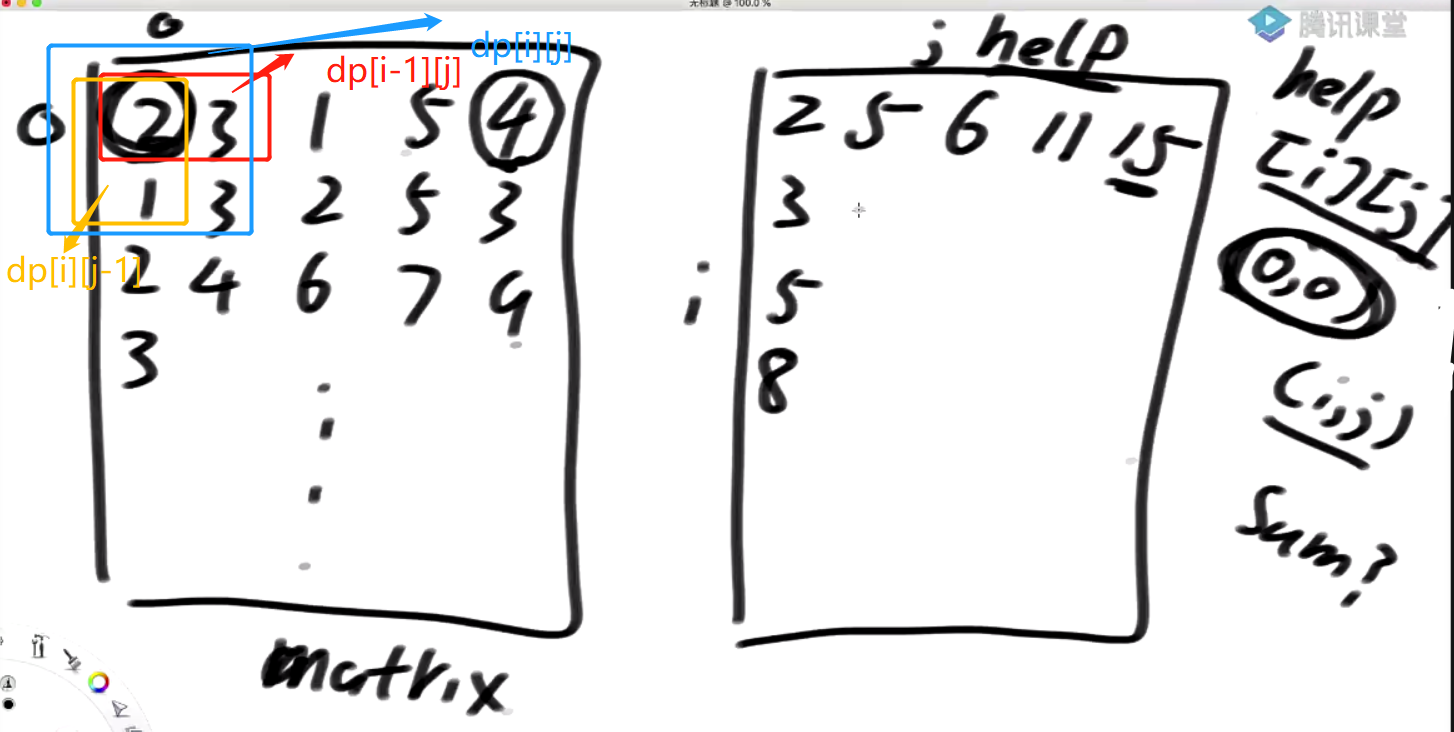 无标题 @ 100.0 %
腾讯课堂
0
dp[i][j]
dp[i-1][j]
0 2 3 1 5 4
1 3 2 5 3
dp[i][j-1]
2 4 6 7 9
3
matrix
j help
2 5 6 11 15
3
i
5
8
help
[i][j]
(0,0)
(i,j)
Sum?